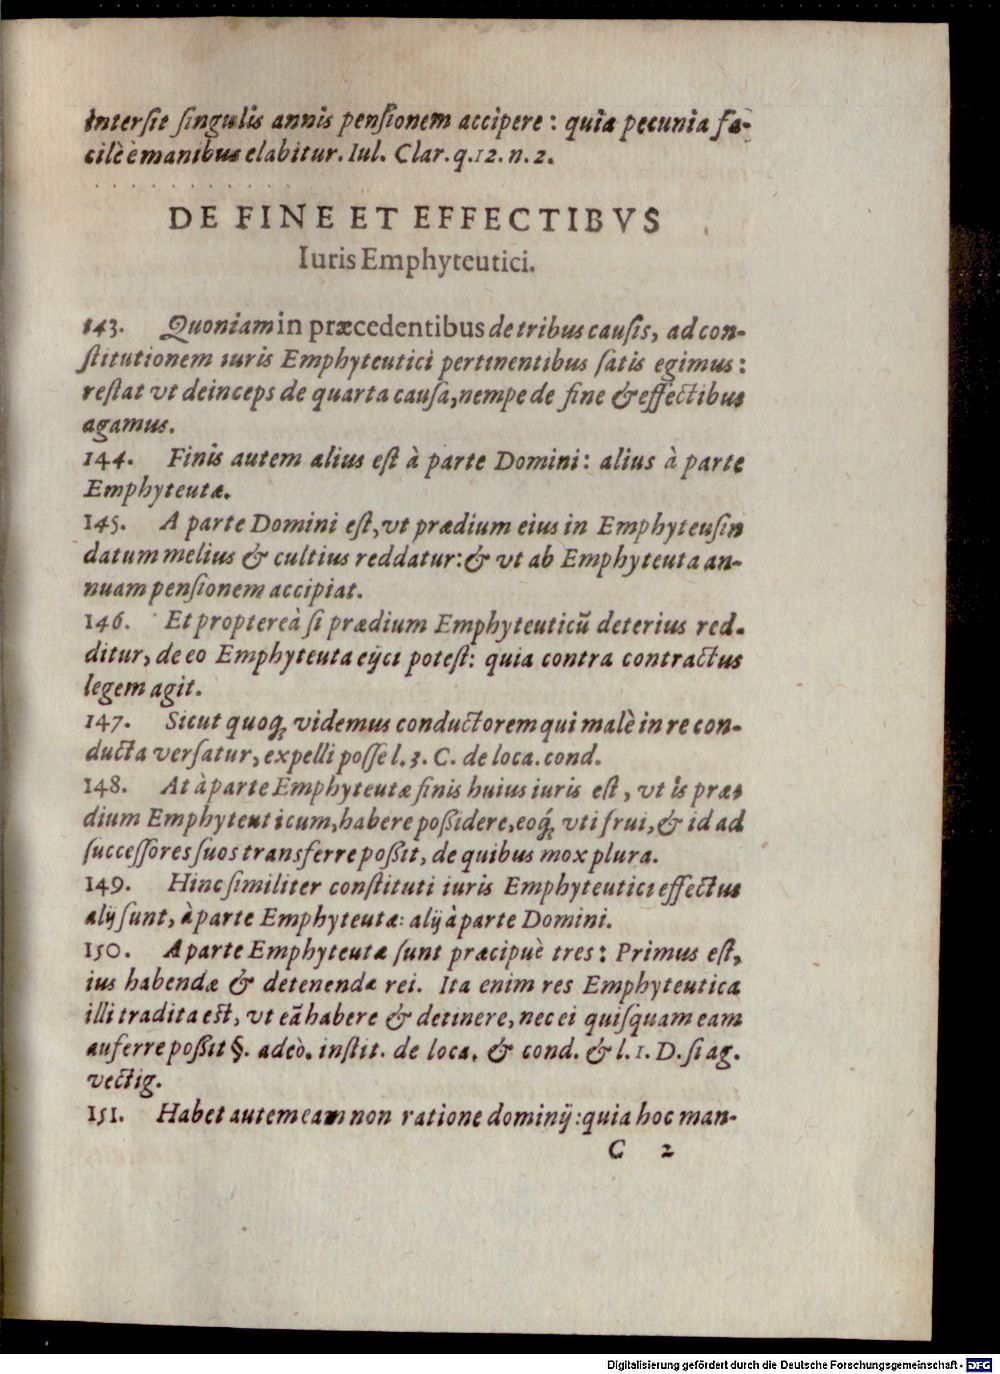 interſit ſingulis annis penſionem accipere: quia pecunia fa-
cilè è manibus elabitur. Iul. Clar. q. 12. n. 2.
DE FINE ET EFFECTIBVS
Iuris Emphyteutici.
143. Quoniam in præcedentibus de tribus cauſis, ad con-
ſtitutionem iuris Emphyteutici pertinentibus ſatis egimus:
reſtat vt deinceps de quarta cauſa, nempe de fine & effectibus
agamus.
144. Finis autem alius eſt à parte Domini: alius à parte
Emphyteutæ.
145. A parte Domini eſt, vt prædium eius in Emphyteuſin
datum melius & cultius reddatur: & vt ab Emphyteuta an-
nuam penſionem accipiat.
146. Et proptereà ſi prædium Emphyteuticũ deterius red-
ditur, de eo Emphyteuta eijci poteſt: quia contra contractus
legem agit.
147. Sicut quoq; videmus conductorem qui malè in re con-
ducta verſatur, expelli poſſe l. 3. C. de loca. cond.
148. At à parte Emphyteutæ finis huius iuris eſt, vt is præ-
dium Emphyteuticum, habere poßidere, eoq́; vti frui, & id ad
ſucceſſores ſuos transferre poßit, de quibus mox plura.
149. Hinc ſimiliter conſtituti iuris Emphyteutici effectus
alij ſunt, à parte Emphyteutæ: alij à parte Domini.
150. A parte Emphyteutæ ſunt præcipuè tres: Primus eſt,
ius habendæ & detenendæ rei. Ita enim res Emphyteutica
illi tradita eſt, vt eã habere & detinere, nec ei quiſquam eam
auferre poßit §. adeò. inſtit. de loca. & cond. & l. 1. D. ſi ag.
vectig.
151. Habet autem eam non ratione dominij: quia hoc man-
C 2
Digitalisierung gefördert durch die Deutsche Forschungsgemeinschaft - DFG